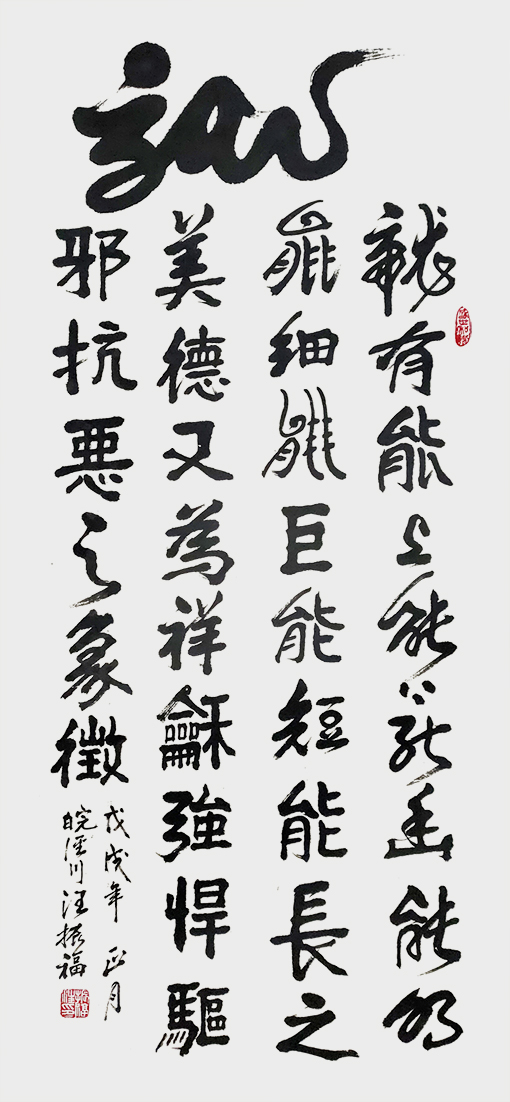 龍
龍有能上能下能幽能明
能細能巨能短能長之
美德又為祥龢強悍驅
邪抗悪之象徵
戊戌年 正月
皖涇川汪振福